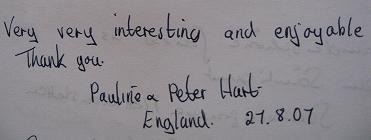 Very very interesting and enjoyable
Thank you.
Pauline & Peter Hart
England. 27.8.07